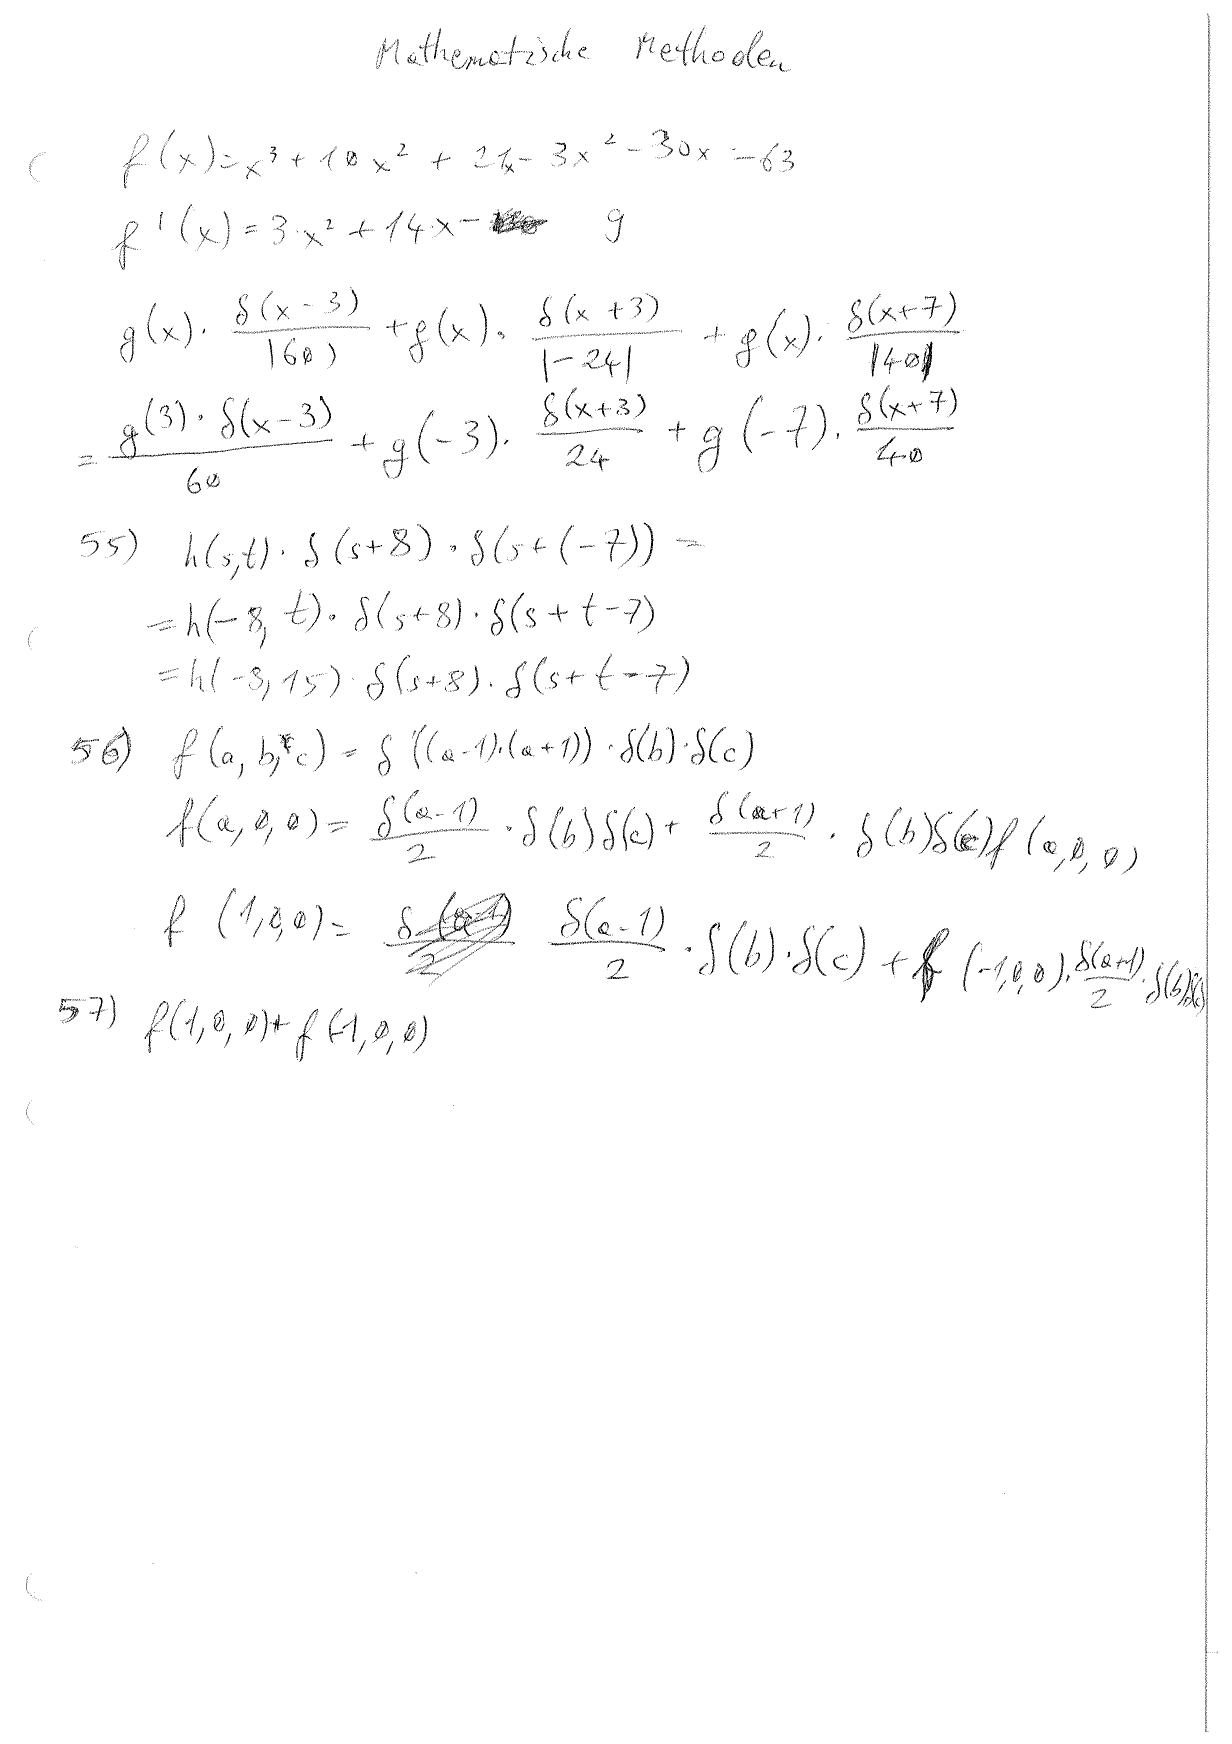 Mathematische Methoden
f(x)=x³+10x²+21x-3x²-30x-63
f'(x)=3·x²+14·x- 9
g(x)·δ(x-3)/|60|+g(x)·δ(x+3)/|-24|+g(x)·δ(x+7)/|40|
=g(3)·δ(x-3)/60+g(-3)·δ(x+3)/24+g(-7)·δ(x+7)/40
55) h(s,t)·δ(s+8)·δ(s+(-7))=
=h(-8,t)·δ(s+8)·δ(s+t-7)
=h(-8,15)·δ(s+8)·δ(s+t-7)
56) f(a,b,c)=δ((a-1)·(a+1))·δ(b)·δ(c)
f(a,0,0)=δ(a-1)/2·δ(b)δ(c)+δ(a+1)/2·δ(b)δ(c)f(a,0,0)
f(1,0,0)=δ(a-1)/2·δ(b)·δ(c)+f(-1,0,0)·δ(a+1)/2·δ(b)δ(c)
57) f(1,0,0)+f(-1,0,0)